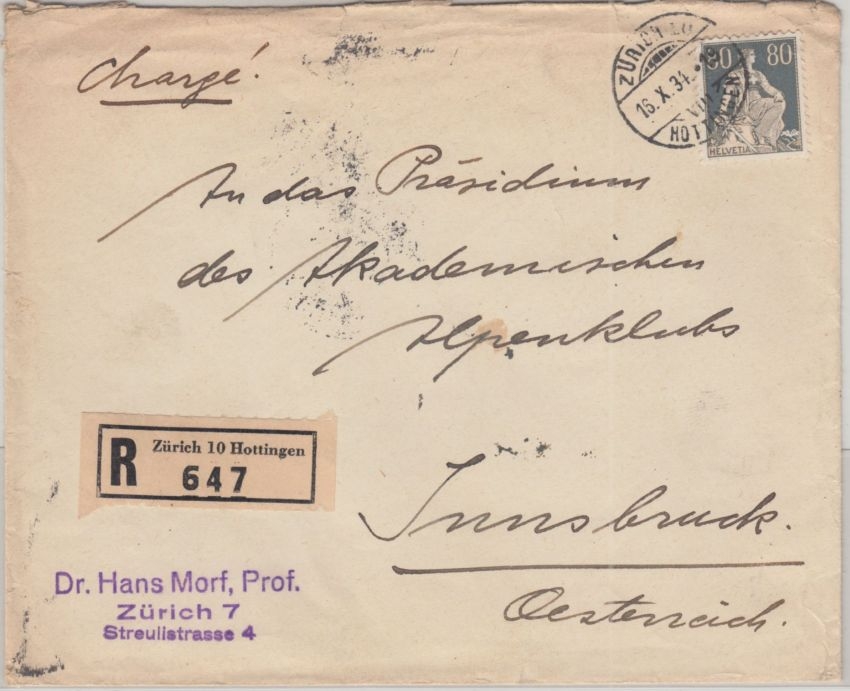 Chargé!
ZÜRICH 10
16. X. 34.-18
VIII
HOTTINGEN
80 80
HELVETIA
An das Präsidium
des Akademischen
Alpenklubs
R Zürich 10 Hottingen
647
Innsbruck.
Oesterreich.
Dr. Hans Morf, Prof.
Zürich 7
Streulistrasse 4